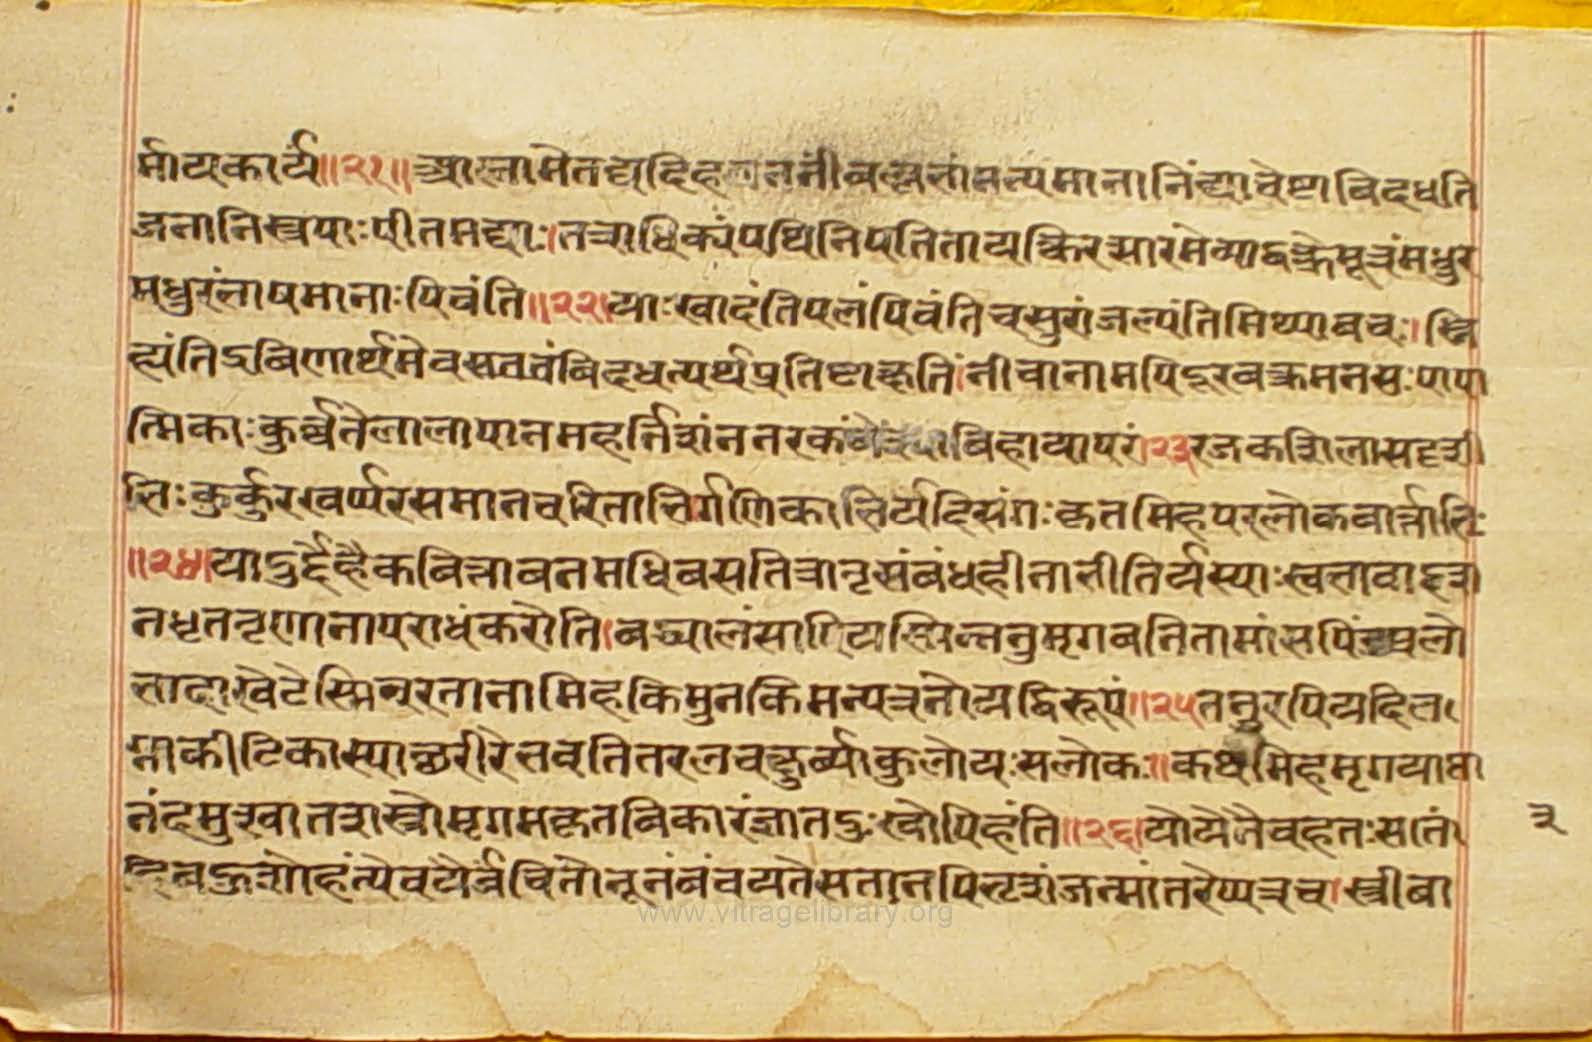 र्माय कार्यं॥२१॥आस्तामेतद्यदिह जननीं वल्लभां मन्यमाना निंद्याचेष्टा विदधति
जना निस्त्रपाः पीतमद्याः।तत्राधिक्यं पथि निपतिता यत्किरत्सारमेयाद्वक्त्रे मूत्रं मधुर
मधुरं भाषमानाः पिवंति॥२२।याः खादंति पलं पिवंति च सुरां जल्पंति मिथ्यावचः।स्नि
ह्यंति द्रविणार्थमेव विदधत्यर्थप्रतिष्टाक्षतिं।नीचानामपि दूरवक्रमनसः पापा
त्मिकाः कुर्वते लालापानमहर्न्निशं न नरकं वेश्यां विहायापरं।२३रजकशिलासदृशी
भिः कुर्कुरखर्प्परसमानचरिताभिः गणिकाभिर्यदि संगः कृतमिह परलोकवार्त्ताभिः
॥२४।या दुर्द्देहैकवित्ता वनमधिवसति त्रातृसंबंधहीना भीतिर्यस्याः स्वभावाद्दश
नधृततृणा नापराधं करोति।वध्यालं सापि यस्मिन्ननु मृगवनिता मांसपिंडप्रलो
भादाखेटेस्मिन् रतानामिह किमुत किमन्यत्र नो यद्विरूपं॥२५तनुरपि यदि ल
ग्ना कीटिका स्याच्छरीरे भवति तरलचक्षुर्व्याकुलो यः स लोकः॥कथमिह मृगया
नंदमुत्खातशस्त्रो मृगमकृतविकारं ज्ञातदुःखोपि हंति॥२६।यो येनैव हतः स तं
हि बहुशो हंत्येव यैर्वंचितो नूनं वंचयते स तानपि भृशं जन्मांतरेप्यत्र च।स्त्रीबा
३
www.vitragelibrary.org